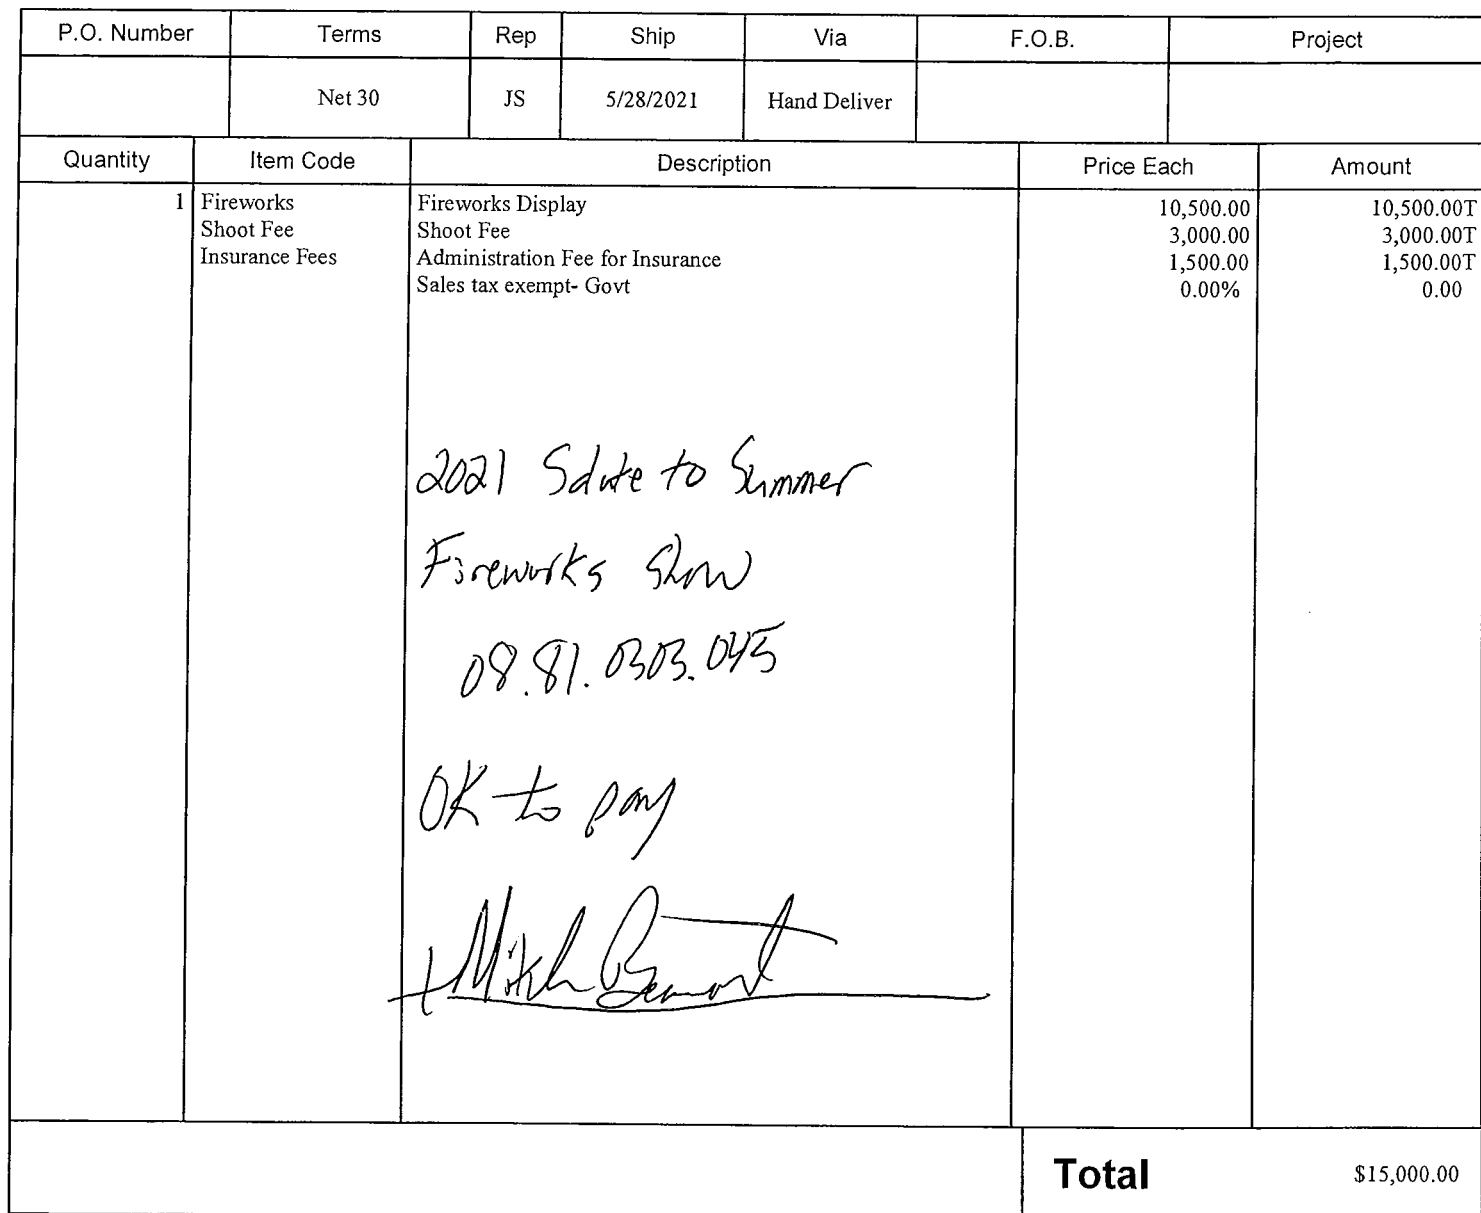 P.O. Number Terms Rep Ship Via F.O.B. Project
Net 30 JS 5/28/2021 Hand Deliver
Quantity Item Code Description Price Each Amount
1 Fireworks Fireworks Display 10,500.00 10,500.00T
Shoot Fee Shoot Fee 3,000.00 3,000.00T
Insurance Fees Administration Fee for Insurance 1,500.00 1,500.00T
Sales tax exempt- Govt 0.00% 0.00
2021 Salute to Summer
Fireworks Show
08.81.0303.045
OK to pay
Total $15,000.00